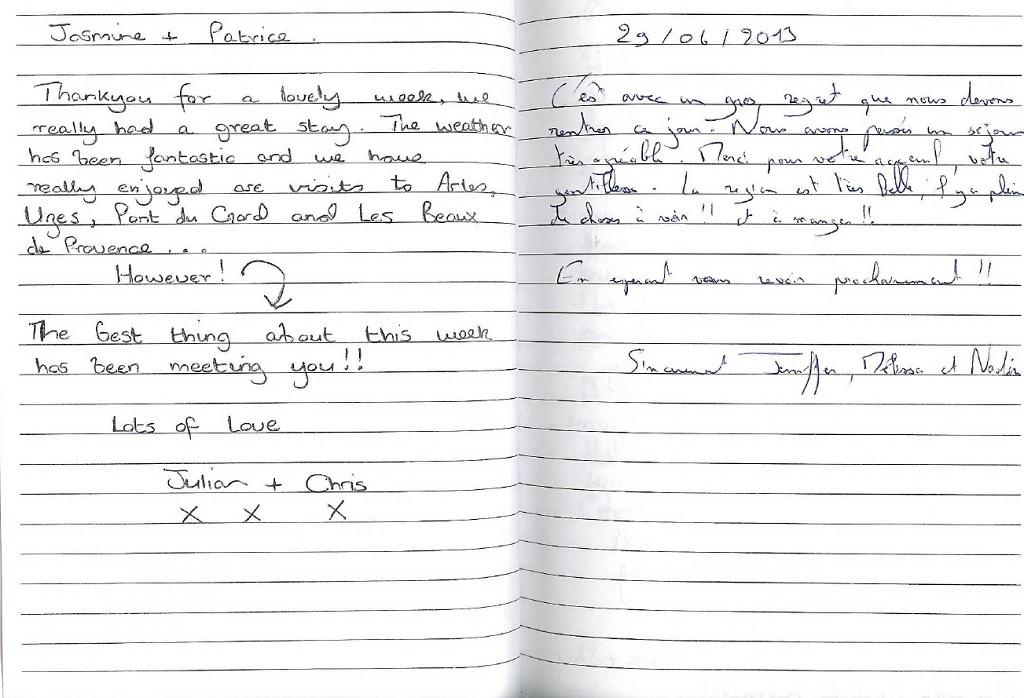 Jasmine + Patrice.
Thankyou for a lovely week, we
really had a great stay. The weather
has been fantastic and we have
really enjoyed are visits to Arles,
Uzes, Pont du Gard and Les Beaux
de Provence...
However!
The best thing about this week
has been meeting you!!
Lots of Love
Julian + Chris
X X X
29/06/2013
C'est avec un gros regret que nous devons
rentrer ce jour. Nous avons passés un séjour
très agréable. Merci pour votre acceuil, votre
gentillesse. La region est très belle, il y a plein
de choses à voir!! et à manger!!
En esperant vous revoir prochainement!!
Sincerement Jennifer, Mélissa et